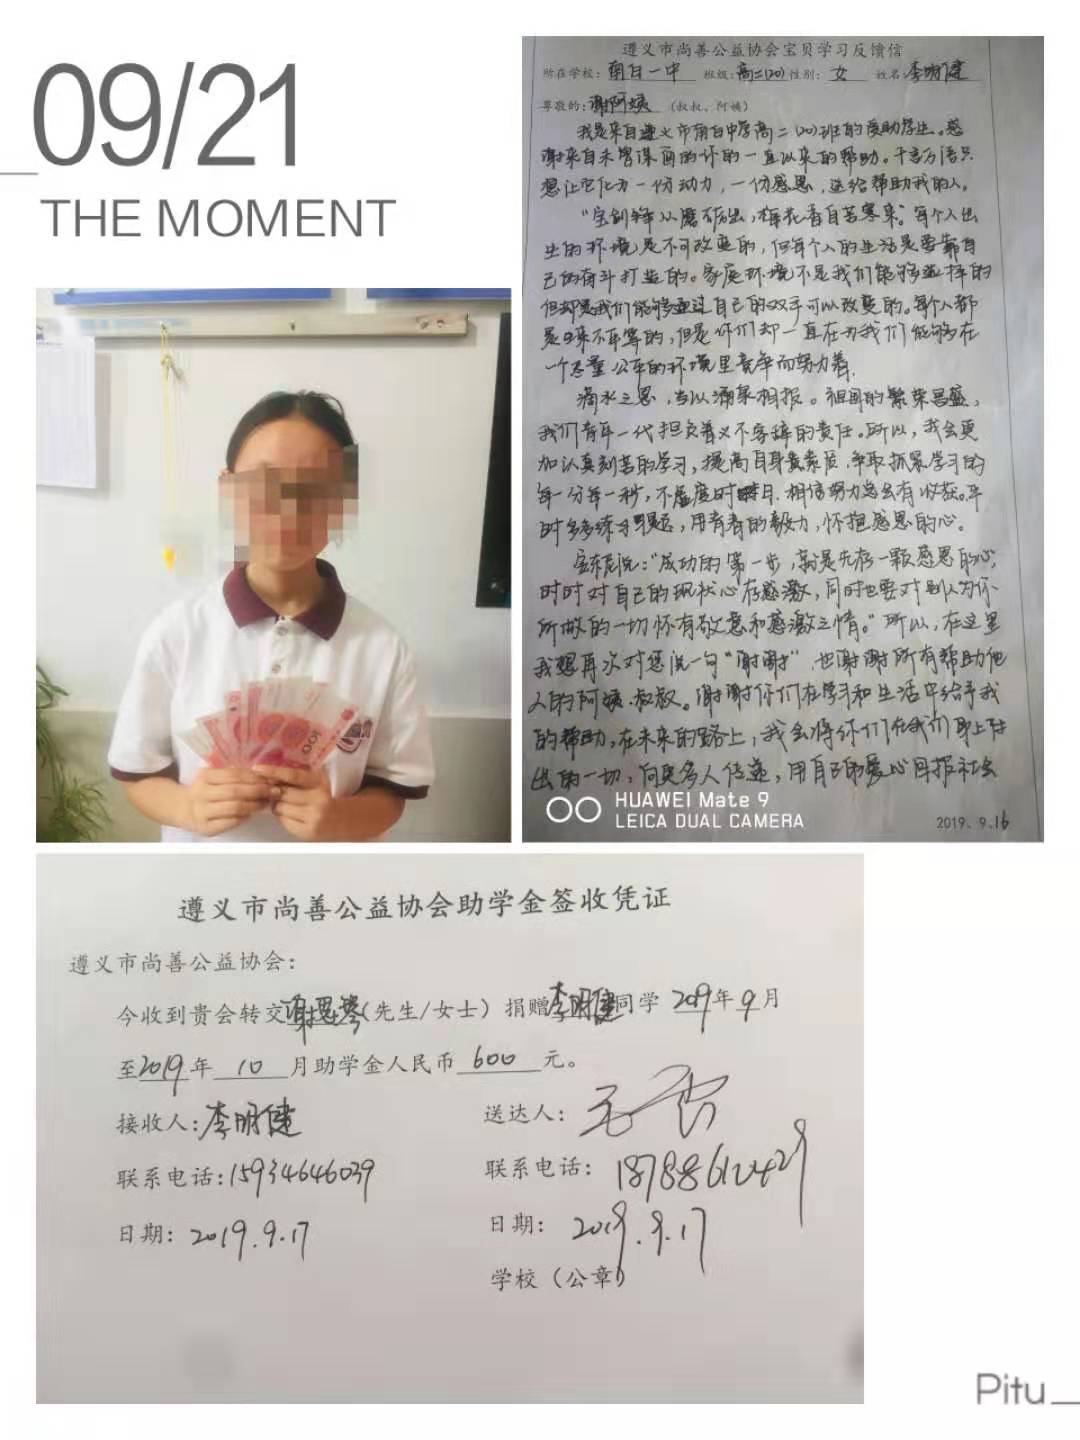 09/21
THE MOMENT
遵义市尚善公益协会宝贝学习反馈信
所在学校: 南白一中 班级: 高二(20) 性别: 女 姓名: 李明健
尊敬的: 谢阿姨 (叔叔、阿姨)
我是来自遵义市南白中学高二(20)班的受助学生。感
谢来自未曾谋面的你的一直以来的帮助。千言万语只
想让它化为一份动力，一份感恩，送给帮助我的人。
"宝剑锋从磨砺出，梅花香自苦寒来。"每个人出
生的环境是不可改变的，但每个人的生活是要靠自
己的奋斗打造的。家庭环境不是我们能够选择的
但却是我们能够通过自己的双手可以改变的。每个人都
是生来不平等的，但是你们却一直在为我们能够在
一个尽量公平的环境里竞争而努力着.
滴水之恩，当以涌泉相报。祖国的繁荣昌盛，
我们青年一代担负着义不容辞的责任。所以，我会更
加认真刻苦的学习，提高自身素质，争取抓紧学习的
每一分每一秒，不虚度时日，相信努力总会有收获。平
时多多练习，用青春的毅力，怀抱感恩的心。
说："成功的第一步，就是先存一颗感恩的心，
时时对自己的现状心存感激，同时也要对别人为你
所做的一切怀有敬意和感激之情。"所以，在这里
我想再次对您说一句"谢谢"，也谢谢所有帮助他
人的阿姨、叔叔。谢谢你们在学习和生活中给予我
的帮助，在未来的路上，我会将你们在我们身上付
出的一切，向更多人传递，用自己的爱心回报社会
HUAWEI Mate 9
LEICA DUAL CAMERA
2019.9.16
100
遵义市尚善公益协会助学金签收凭证
遵义市尚善公益协会:
今收到贵会转交谢思琴(先生/女士)捐赠李明健同学 2019年9月
至2019年 10 月助学金人民币 600 元。
接收人: 李明健
送达人:
联系电话: 15934646039
联系电话: 18788612429
日期: 2019.9.17
日期: 2019.9.17
学校(公章)
Pitu